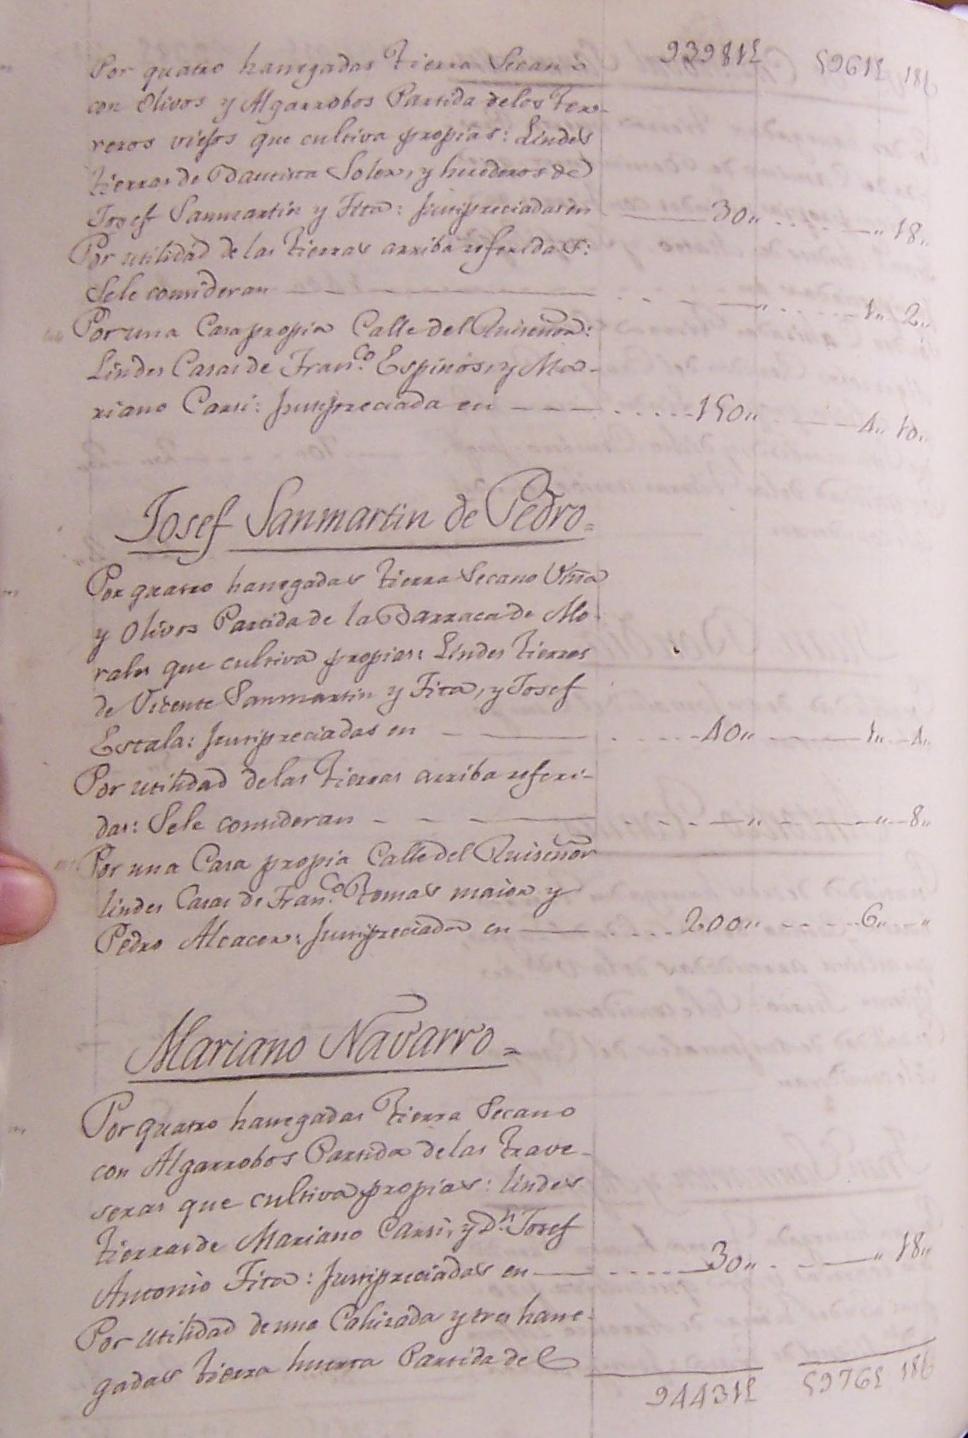 93981£ 5961£ 18
Por quatro hanegadas tierra Secano
con Olivos y Algarrobos Partida delos Ter-
reros viejos que cultiva propias: Lindes
tierras de Bautista Soler, y herederos de
Josef Sanmartin y Fita: Justipreciadas en 30,, ,, 18,,
Por utilidad de las tierras arriba referidas:
Sele consideran ,, 1,, 2,,
Por una Casa propia Calle del Ruiseñor:
Lindes Casas de Fran.co Espinós, y Ma-
riano Carsi: Justipreciada en 150,, 4,, 10,,
Josef Sanmartin de Pedro=
Por quatro hanegadas tierra Secano Viña
y Olivos Partida de la Barraca de Mo-
rales que cultiva propias: Lindes tierras
de Vicente Sanmartin y Fita, y Josef
Escala: Justipreciadas en 40,, 1,, 4,,
Por utilidad delas tierras arriba referi-
das: Sele consideran ,, ,, 8,,
Por una Casa propia Calle del Ruiseñor
lindes Casas de Fran.co Romas maior y
Pedro Alcacer: Justipreciada en 200,, 6,, ,,
Mariano Navarro=
Por quatro hanegadas tierra Secano
con Algarrobos Partida de las Trave-
seras que cultiva propias: lindes
tierras de Mariano Carsi, y Dn. Josef
Antonio Fita: Justipreciadas en 30,, ,, 18,,
Por utilidad de una Cahizada y tres hane-
gadas tierra huerta Partida del
94431£ 5976£ 18